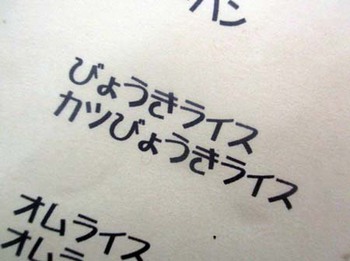 パン
びょうきライス
カツびょうきライス
オムライス
オムラ